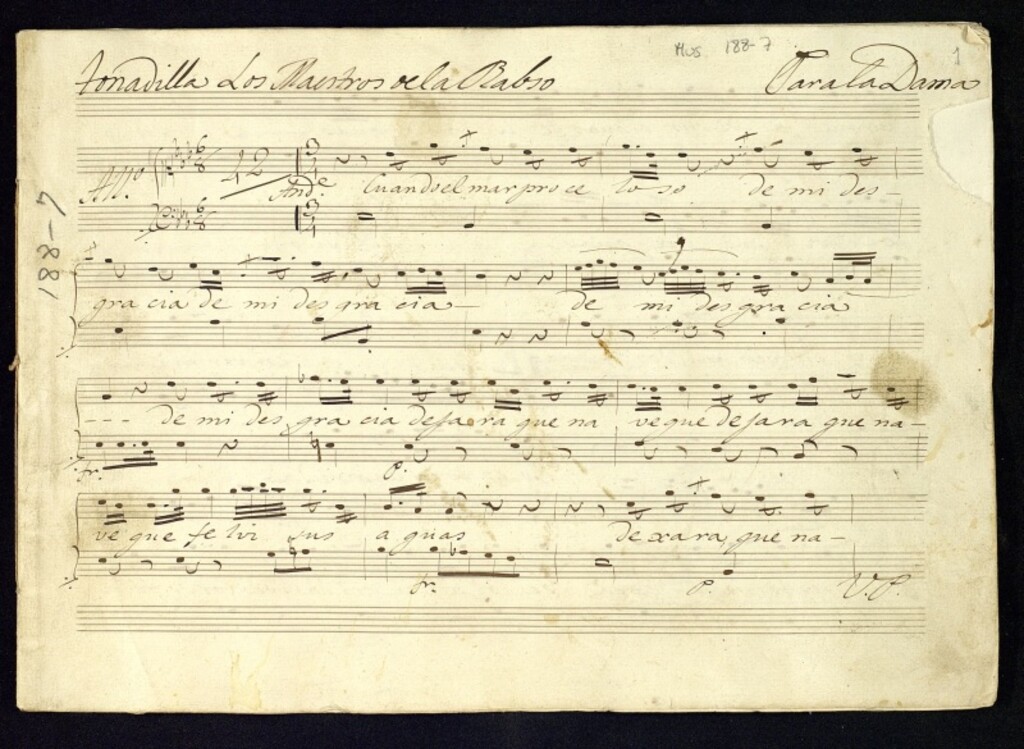 Mus 188-7
1
tonadilla Los Maestros de la Rabso
Para la Dama
188-7
All.º 6/8 42 And.e 3/4
Cuando el mar proce loso de mi des-
gra cia de mi des gra cia- de mi desgra cia
--- de mi des gra cia dejara que na ve que dejara que na-
fr. P.
ve que fe liz sus a guas dexara que na-
fr. P. V.P.